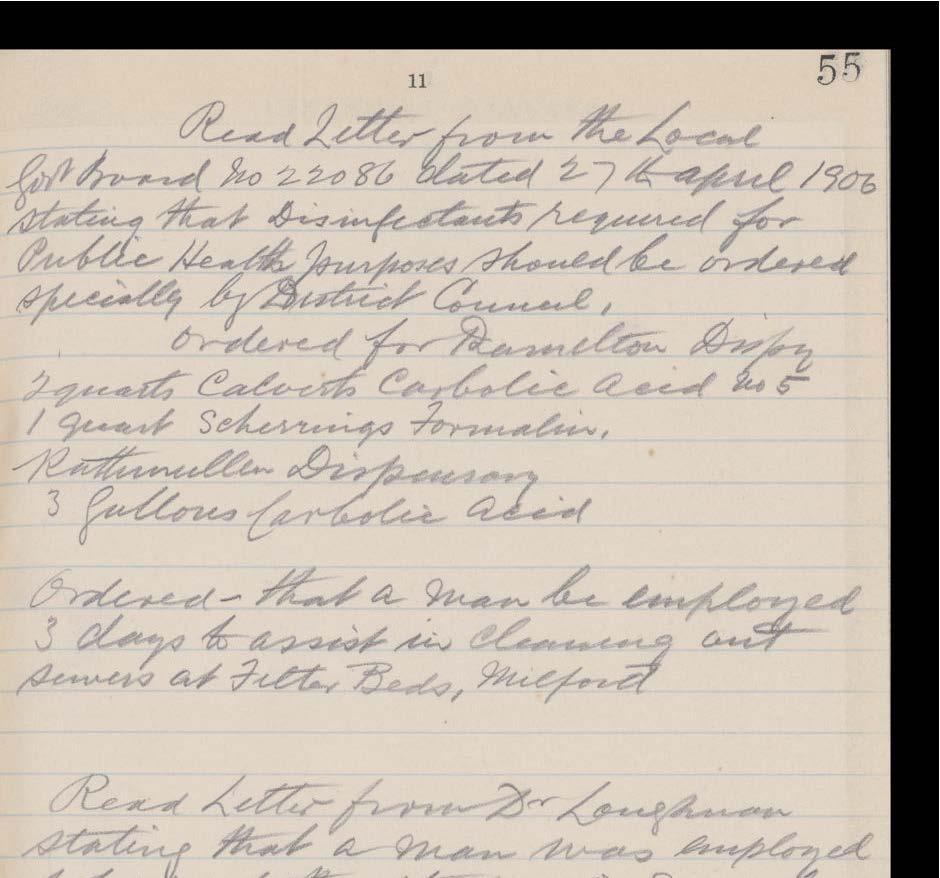 11
55
Read Letter from the Local
Govt Board No 22086 dated 27th april 1906
stating that Disinfectants required for
Public Health purposes should be ordered
specially by District Council.
Ordered for Ramelton Dispy
2 quarts Calverts Carbolic Acid No 5
1 quart Scherrings Formalin.
Rathmullen Dispensary
3 Gallons Carbolic Acid
Ordered - that a man be employed
3 days to assist in cleaning out
sewers at Filter Beds, Milford
Read Letter from Dr Loughman
stating that a man was employed